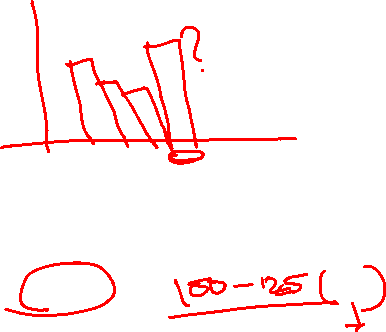 ?
100-125 ( )